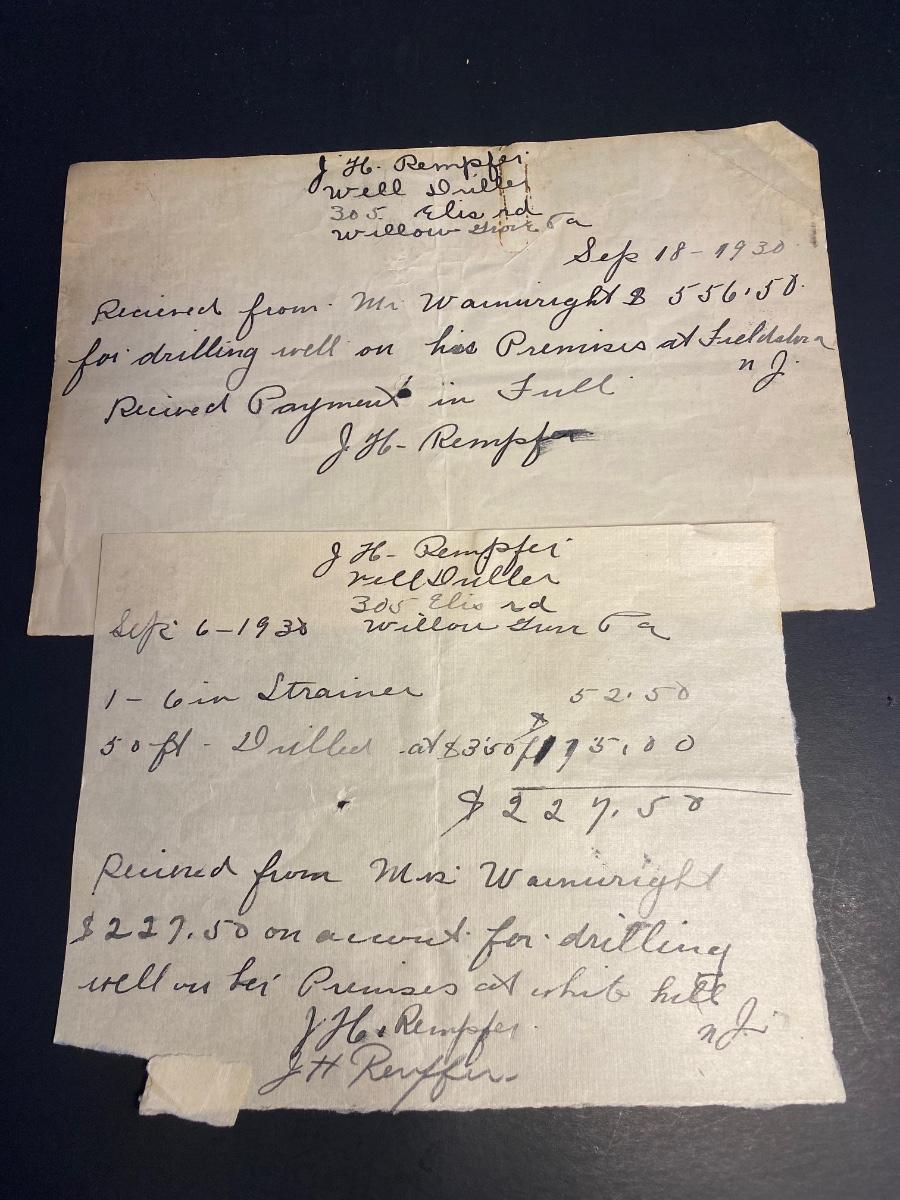 J H. Rempfer
Well Driller
305 Elis rd
Willow Grove Pa
Sep 18-1930
Recieved from Mr Wainwright $ 556.50.
for drilling well on his Premises at Fieldsboro
n J.
Recived Payment in Full
J H- Rempfer
J H- Rempfer
Well Driller
305 Elis rd
Sept 6-1930 Willow Grove Pa
1- 6 in Strainer 52.50
50 ft - Drilled at $350 ft 175.00
$ 227.50
Recieved from Mrs Wainwright
$227.50 on acount for drilling
well on her Premises at white hill
n J.
J. H. Rempfer.
J H Rempfer.